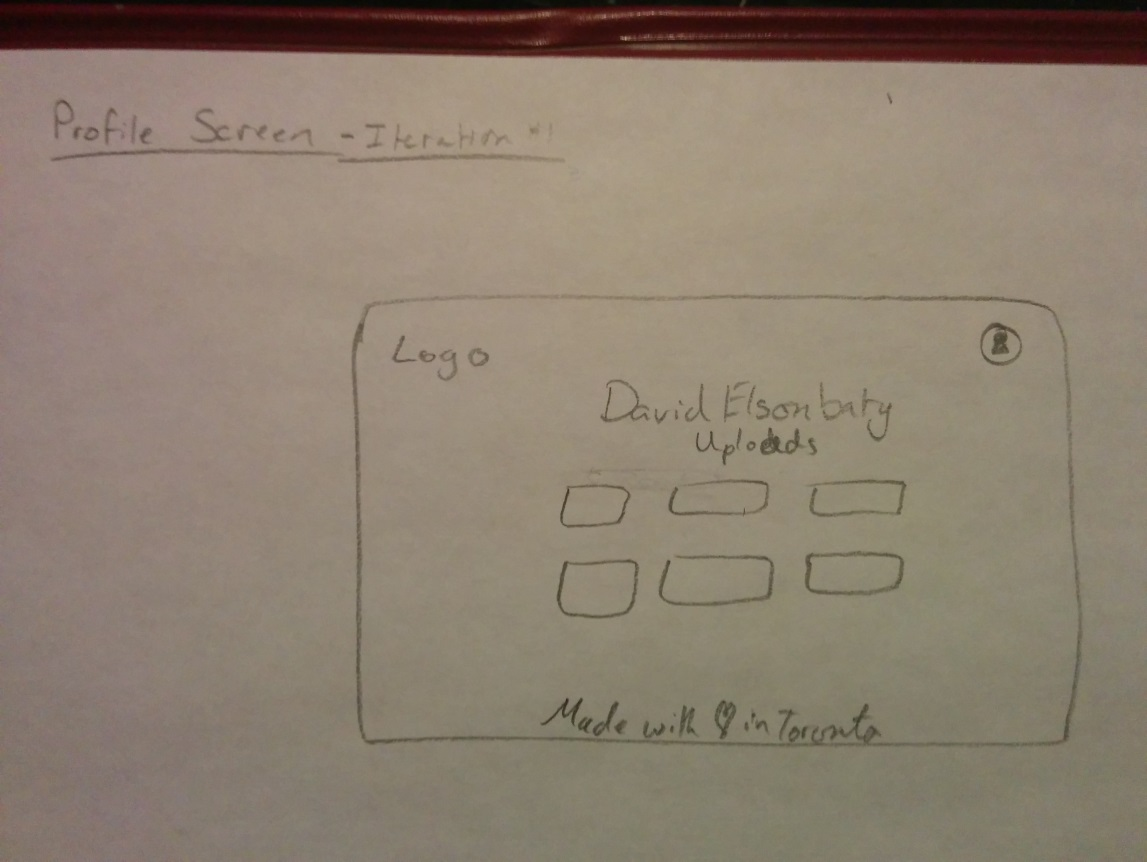 Profile Screen - Iteration #1
Logo
David Elsonbaty
Uploads
Made with in Toronto